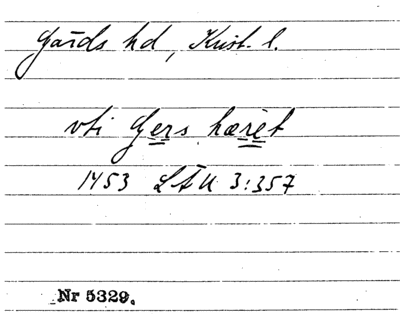 Gärds hd, Krist. l.
vti Gers hæret
1453 LÅU 3:357
Nr 5329.